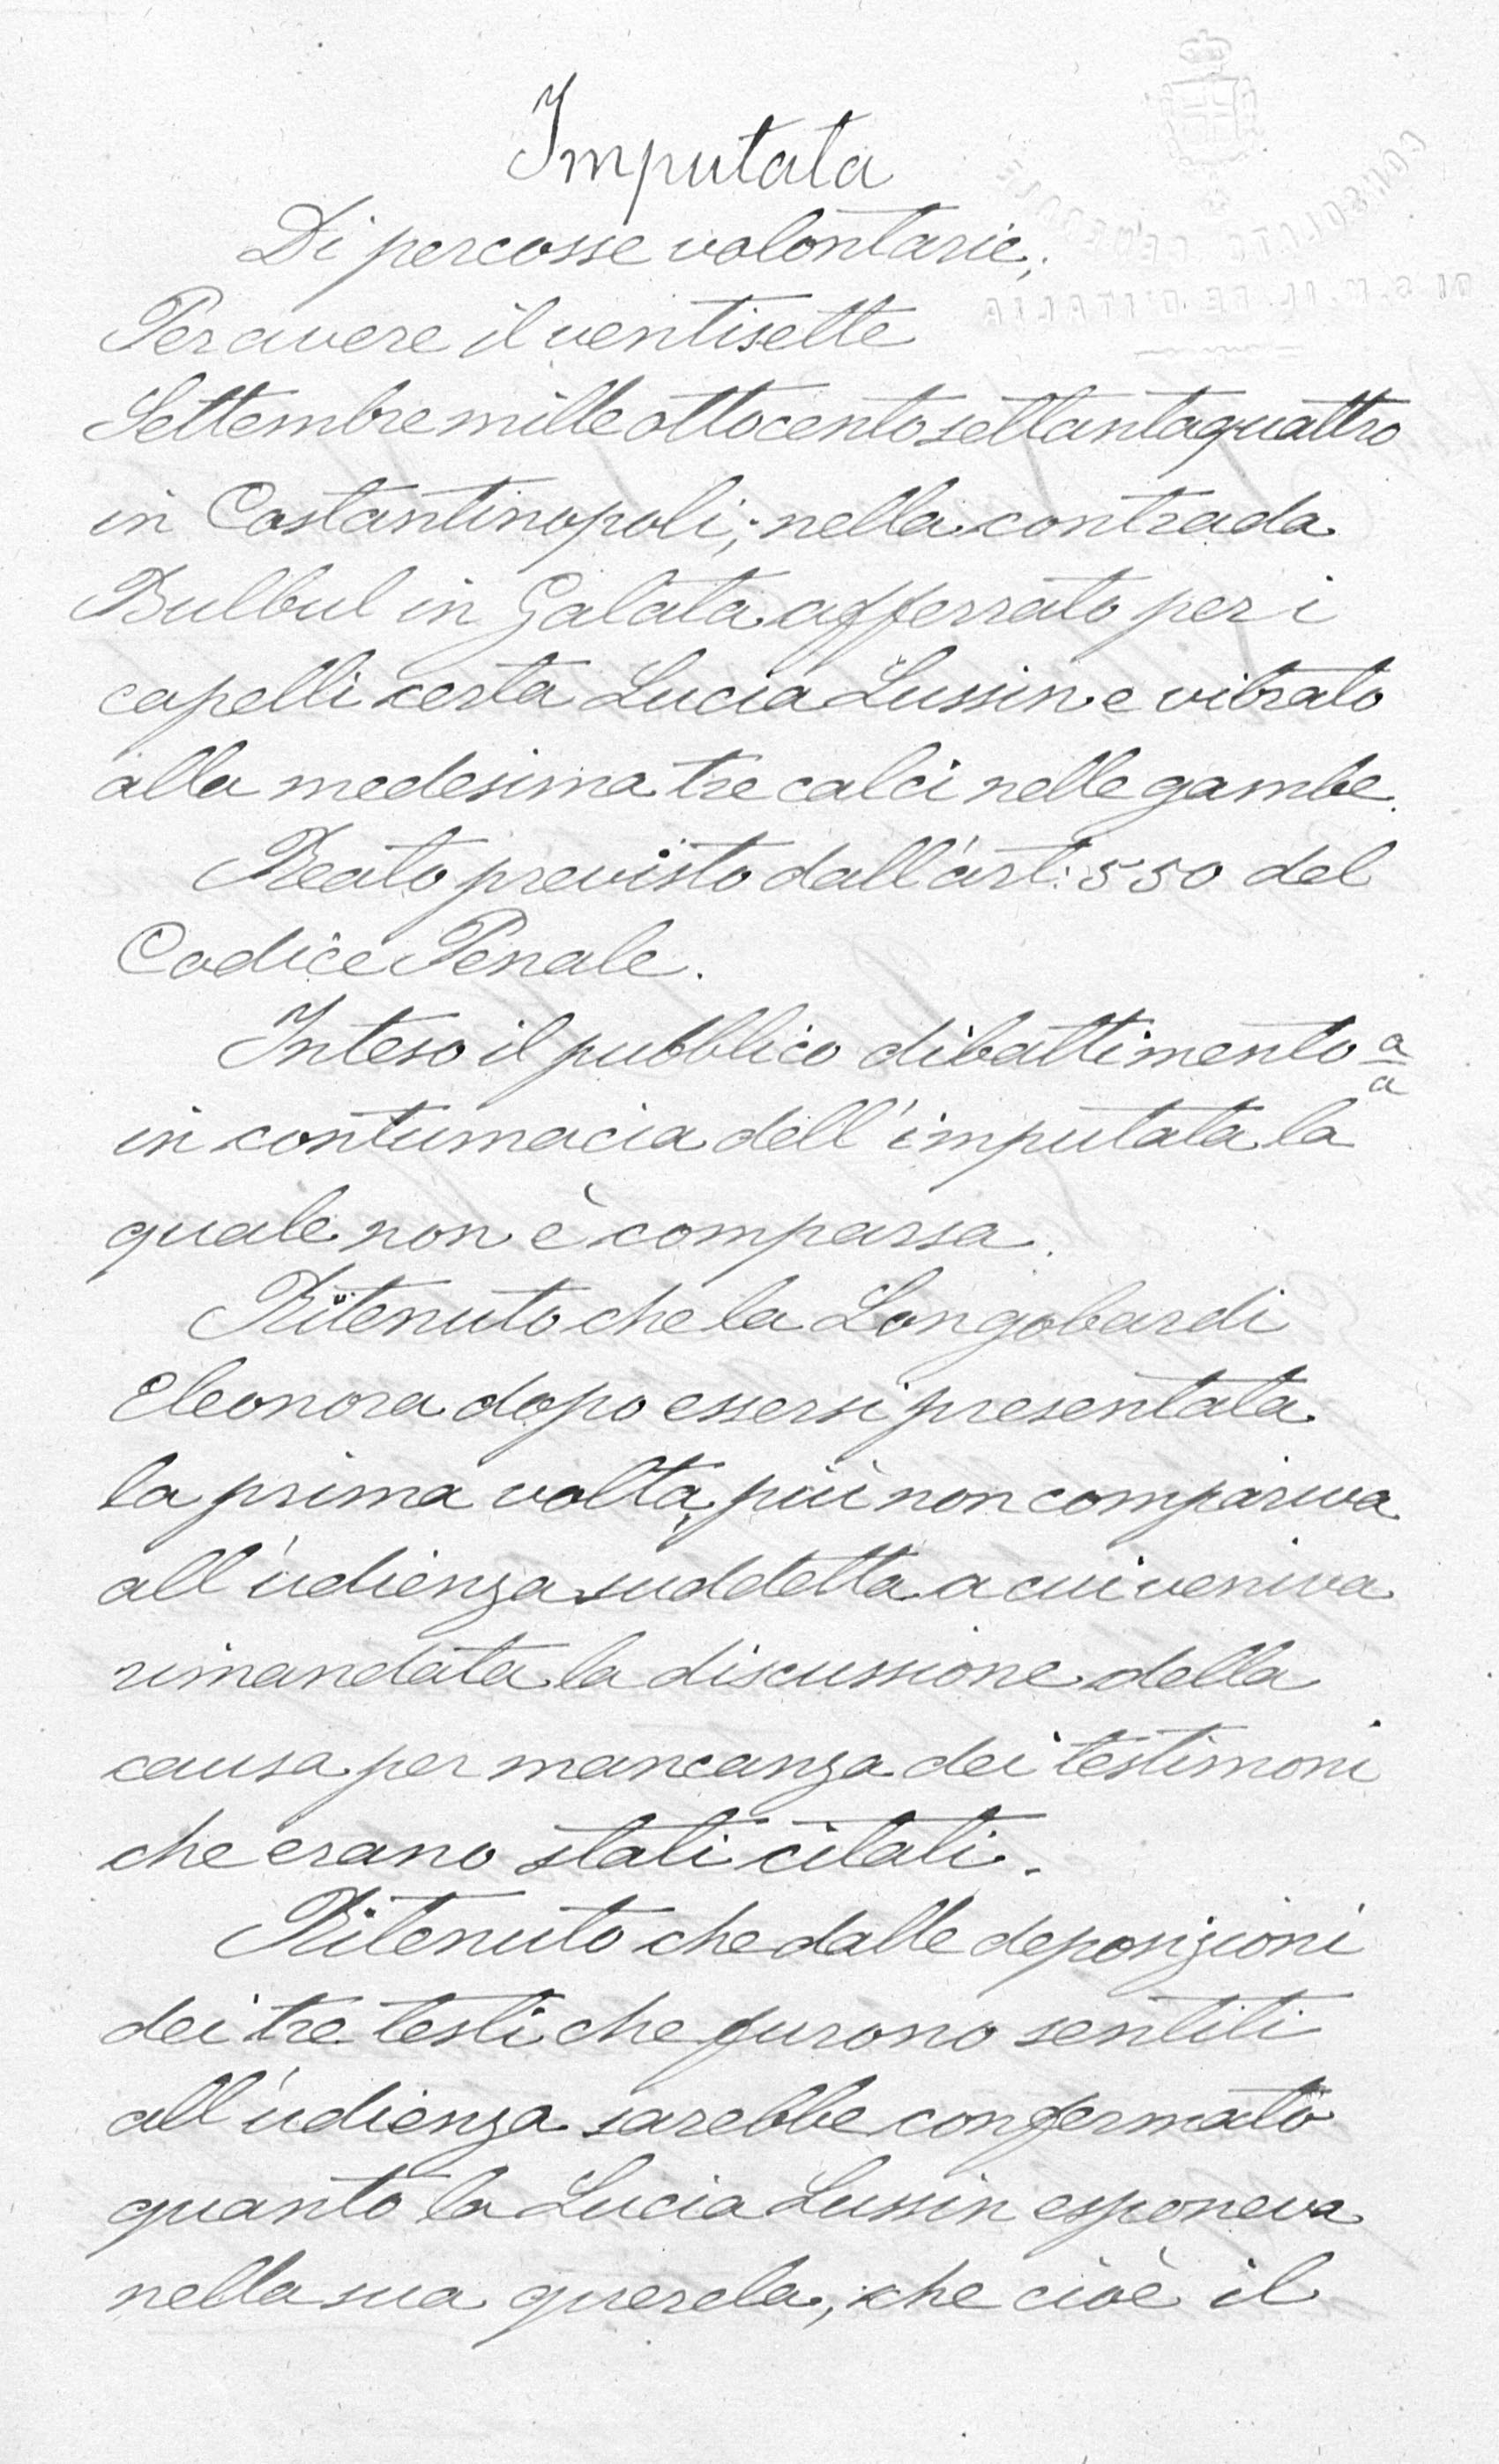 Imputata
Di percosse volontarie;
Per avere il ventisette
Settembre mille ottocento settantaquattro
in Costantinopoli; nella contrada
Bulbul in Galata afferrato per i
capelli certa Lucia Lussin e vibrato
alla medesima tre calci nelle gambe.
Reato previsto dall'art: 550 del
Codice Penale.
Inteso il pubblico dibattimento a
a
in contumacia dell'imputata la
quale non è comparsa.
Ritenuto che la Longobardi
Eleonora dopo essersi presentata
la prima volta, più non compariva
all'udienza suddetta a cui veniva
rimandata la discussione della
causa per mancanza dei testimoni
che erano stati citati.
Ritenuto che dalle deposizioni
dei tre testi che furono sentiti
all'udienza sarebbe confermato
quanto la Lucia Lussin esponeva
nella sua querela, che cioè il